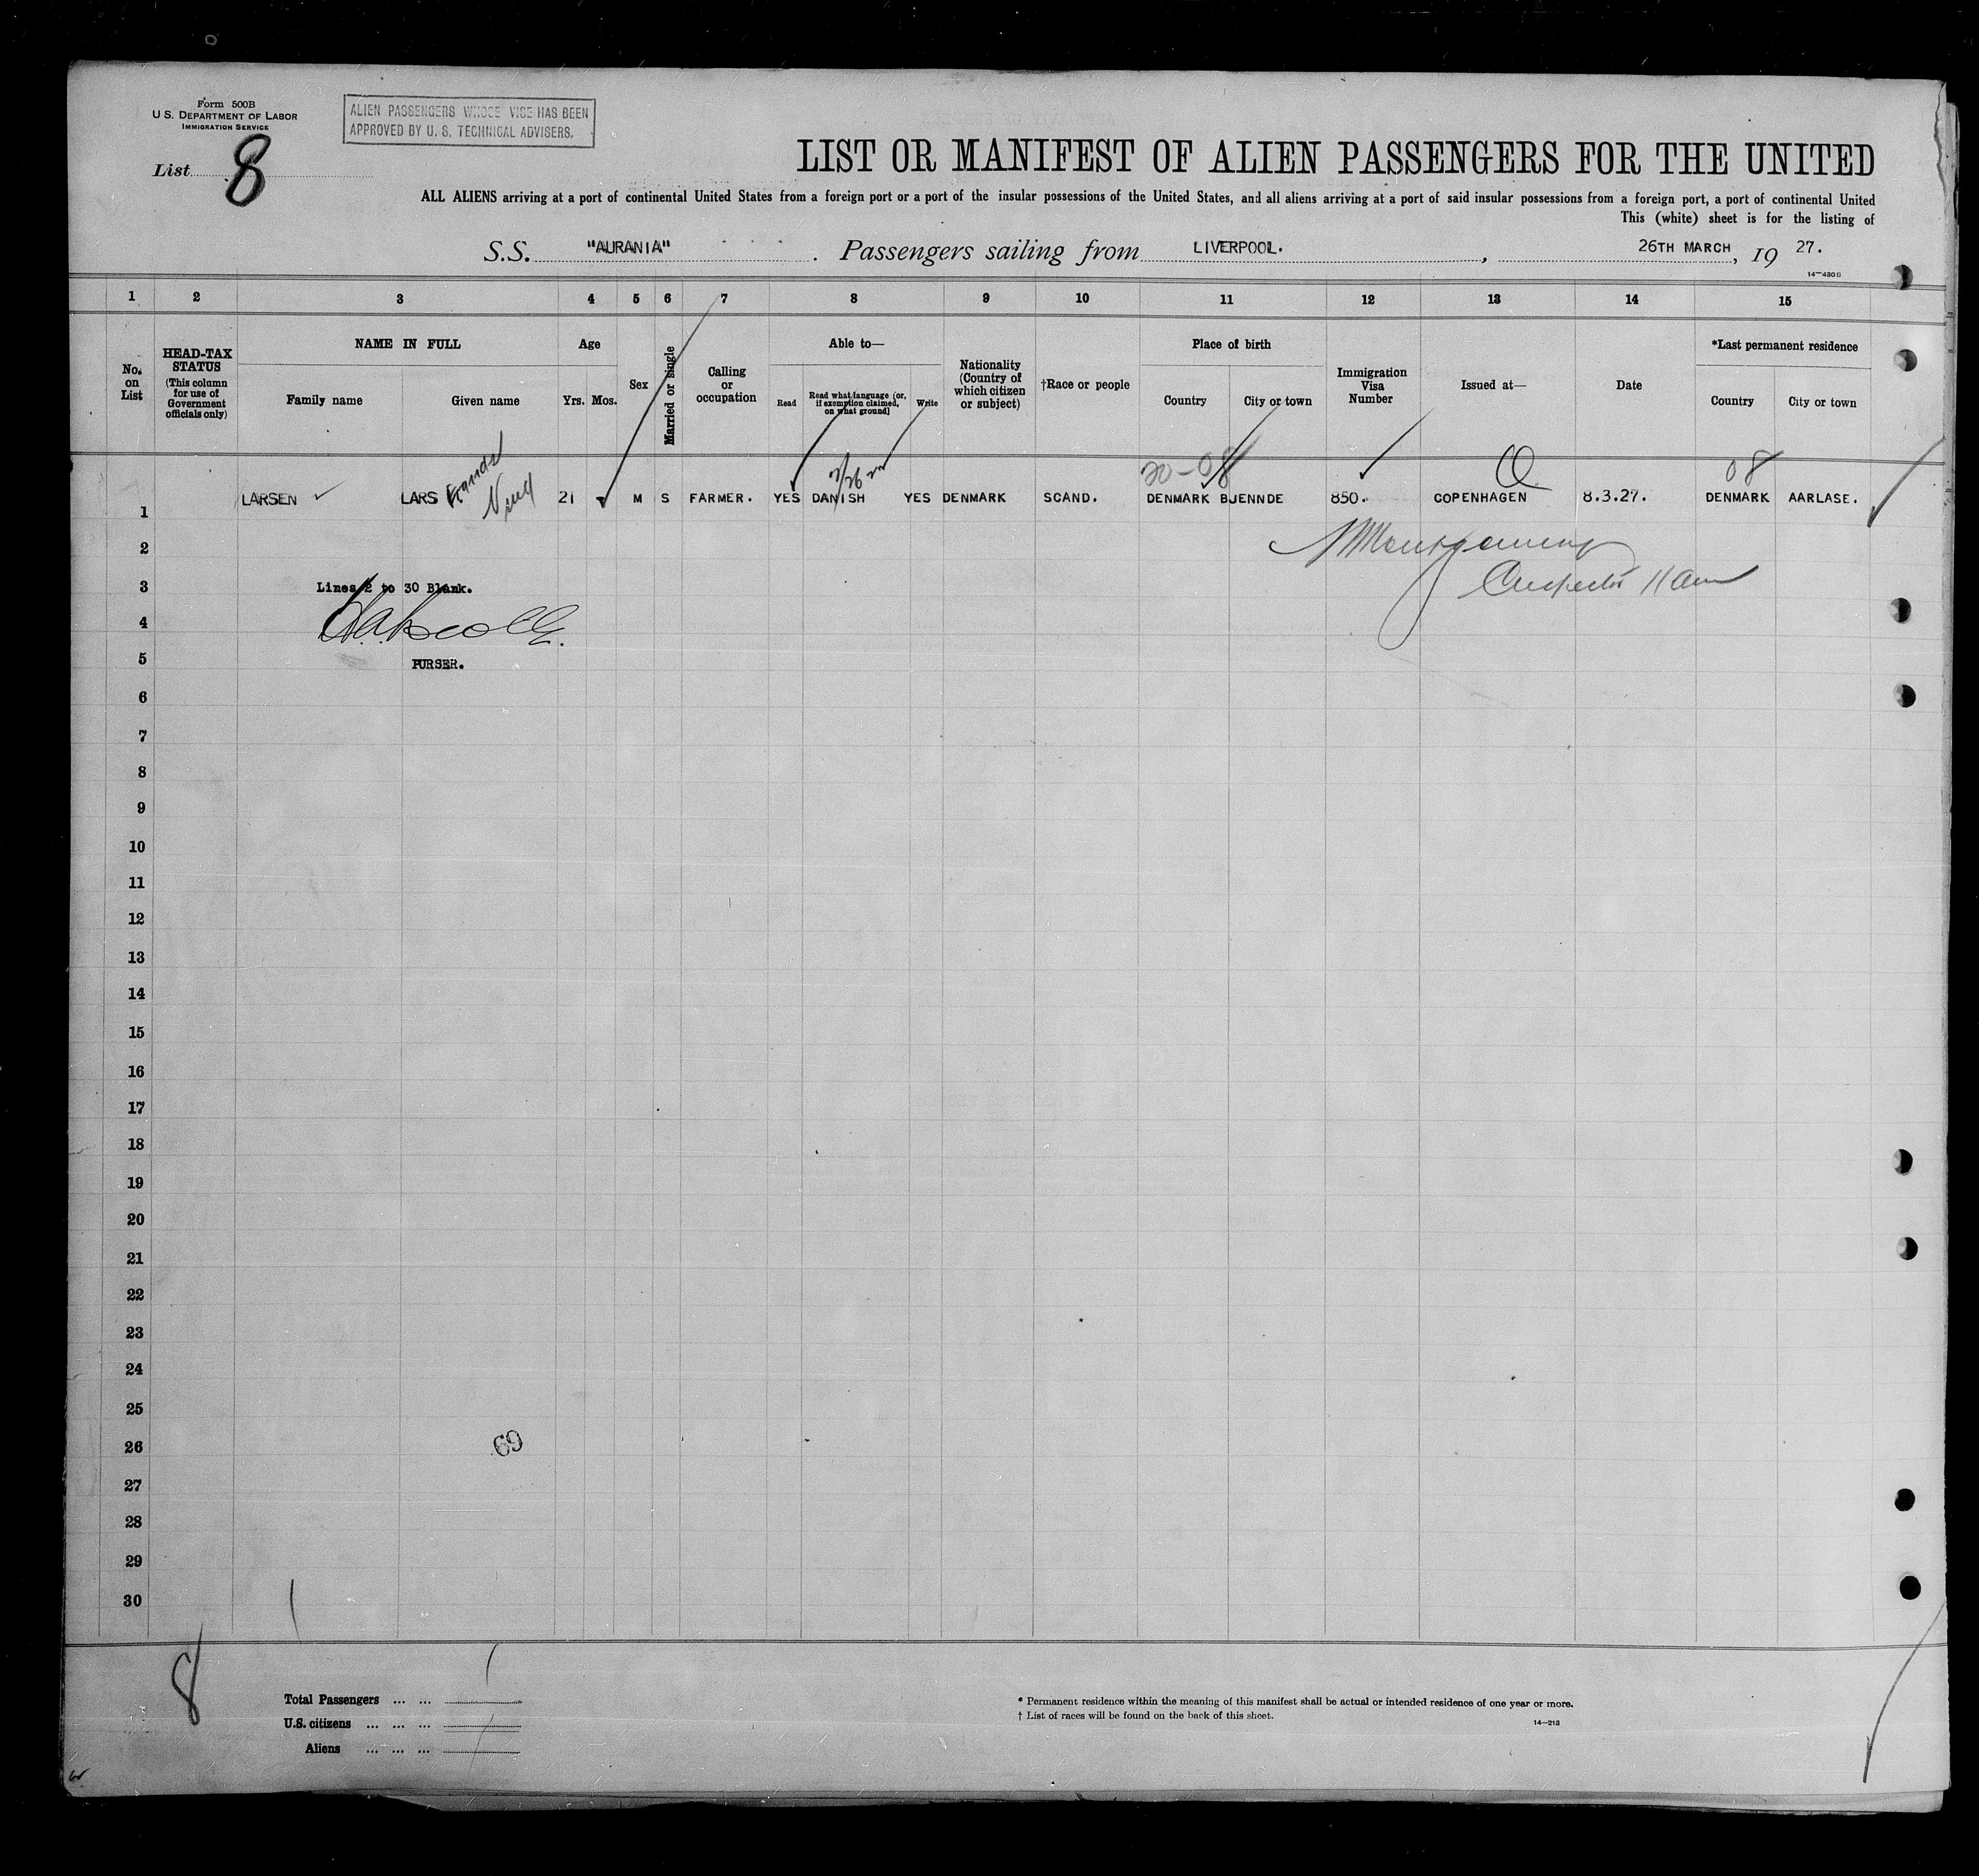 Form 500B
U. S. DEPARTMENT OF LABOR
IMMIGRATION SERVICE
ALIEN PASSENGERS WHOSE VISE HAS BEEN
APPROVED BY U. S. TECHNICAL ADVISERS.
List 8
LIST OR MANIFEST OF ALIEN PASSENGERS FOR THE UNITED
ALL ALIENS arriving at a port of continental United States from a foreign port or a port of the insular possessions of the United States, and all aliens arriving at a port of said insular possessions from a foreign port, a port of continental United
This (white) sheet is for the listing of
S.S. "AURANIA" . Passengers sailing from LIVERPOOL. , 26TH MARCH , 19 27.
14—430B
1 2 3 4 5 6 7 8 9 10 11 12 13 14 15
No. on List
HEAD-TAX STATUS
(This column for use of Government officials only)
NAME IN FULL
Family name Given name
Age
Yrs. Mos.
Sex
Married or single
Calling or occupation
Able to—
Read
Read what language (or, if exemption claimed, on what ground)
Write
Nationality (Country of which citizen or subject)
†Race or people
Place of birth
Country City or town
Immigration Visa Number
Issued at—
Date
*Last permanent residence
Country City or town
20-08 08
1 LARSEN LARS 21 M S FARMER. YES DANISH YES DENMARK SCAND. DENMARK BJENNDE 850. COPENHAGEN 8.3.27. DENMARK AARLASE.
2
Montgomery
3 Lines 2 to 30 Blank.
Inspector
4
5 PURSER.
6
7
8
9
10
11
12
13
14
15
16
17
18
19
20
21
22
23
24
25
26
69
27
28
29
30
8
Total Passengers ... ...
U.S. citizens ... ... ...
Aliens ... ... ...
* Permanent residence within the meaning of this manifest shall be actual or intended residence of one year or more.
† List of races will be found on the back of this sheet.
14—213